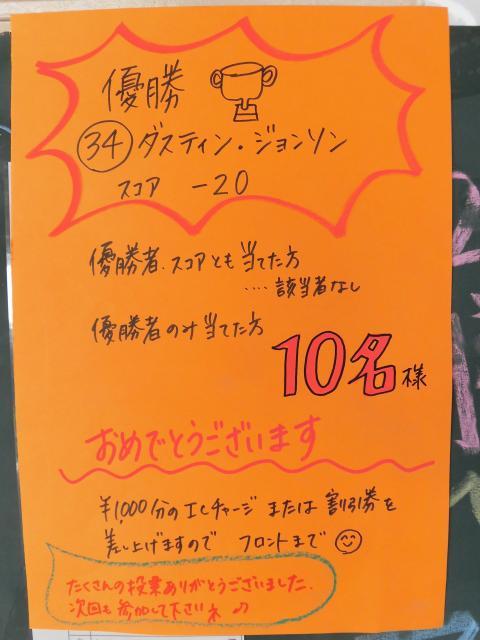 優勝
㉞ ダスティン・ジョンソン
スコア -20
優勝者、スコアとも当てた方
‥‥該当者なし
優勝者のみ当てた方
10名様
おめでとうございます
¥1,000分のICチャージ または 割引券を
差し上げますので フロントまで
たくさんの投票ありがとうございました。
次回も参加して下さいネ♪